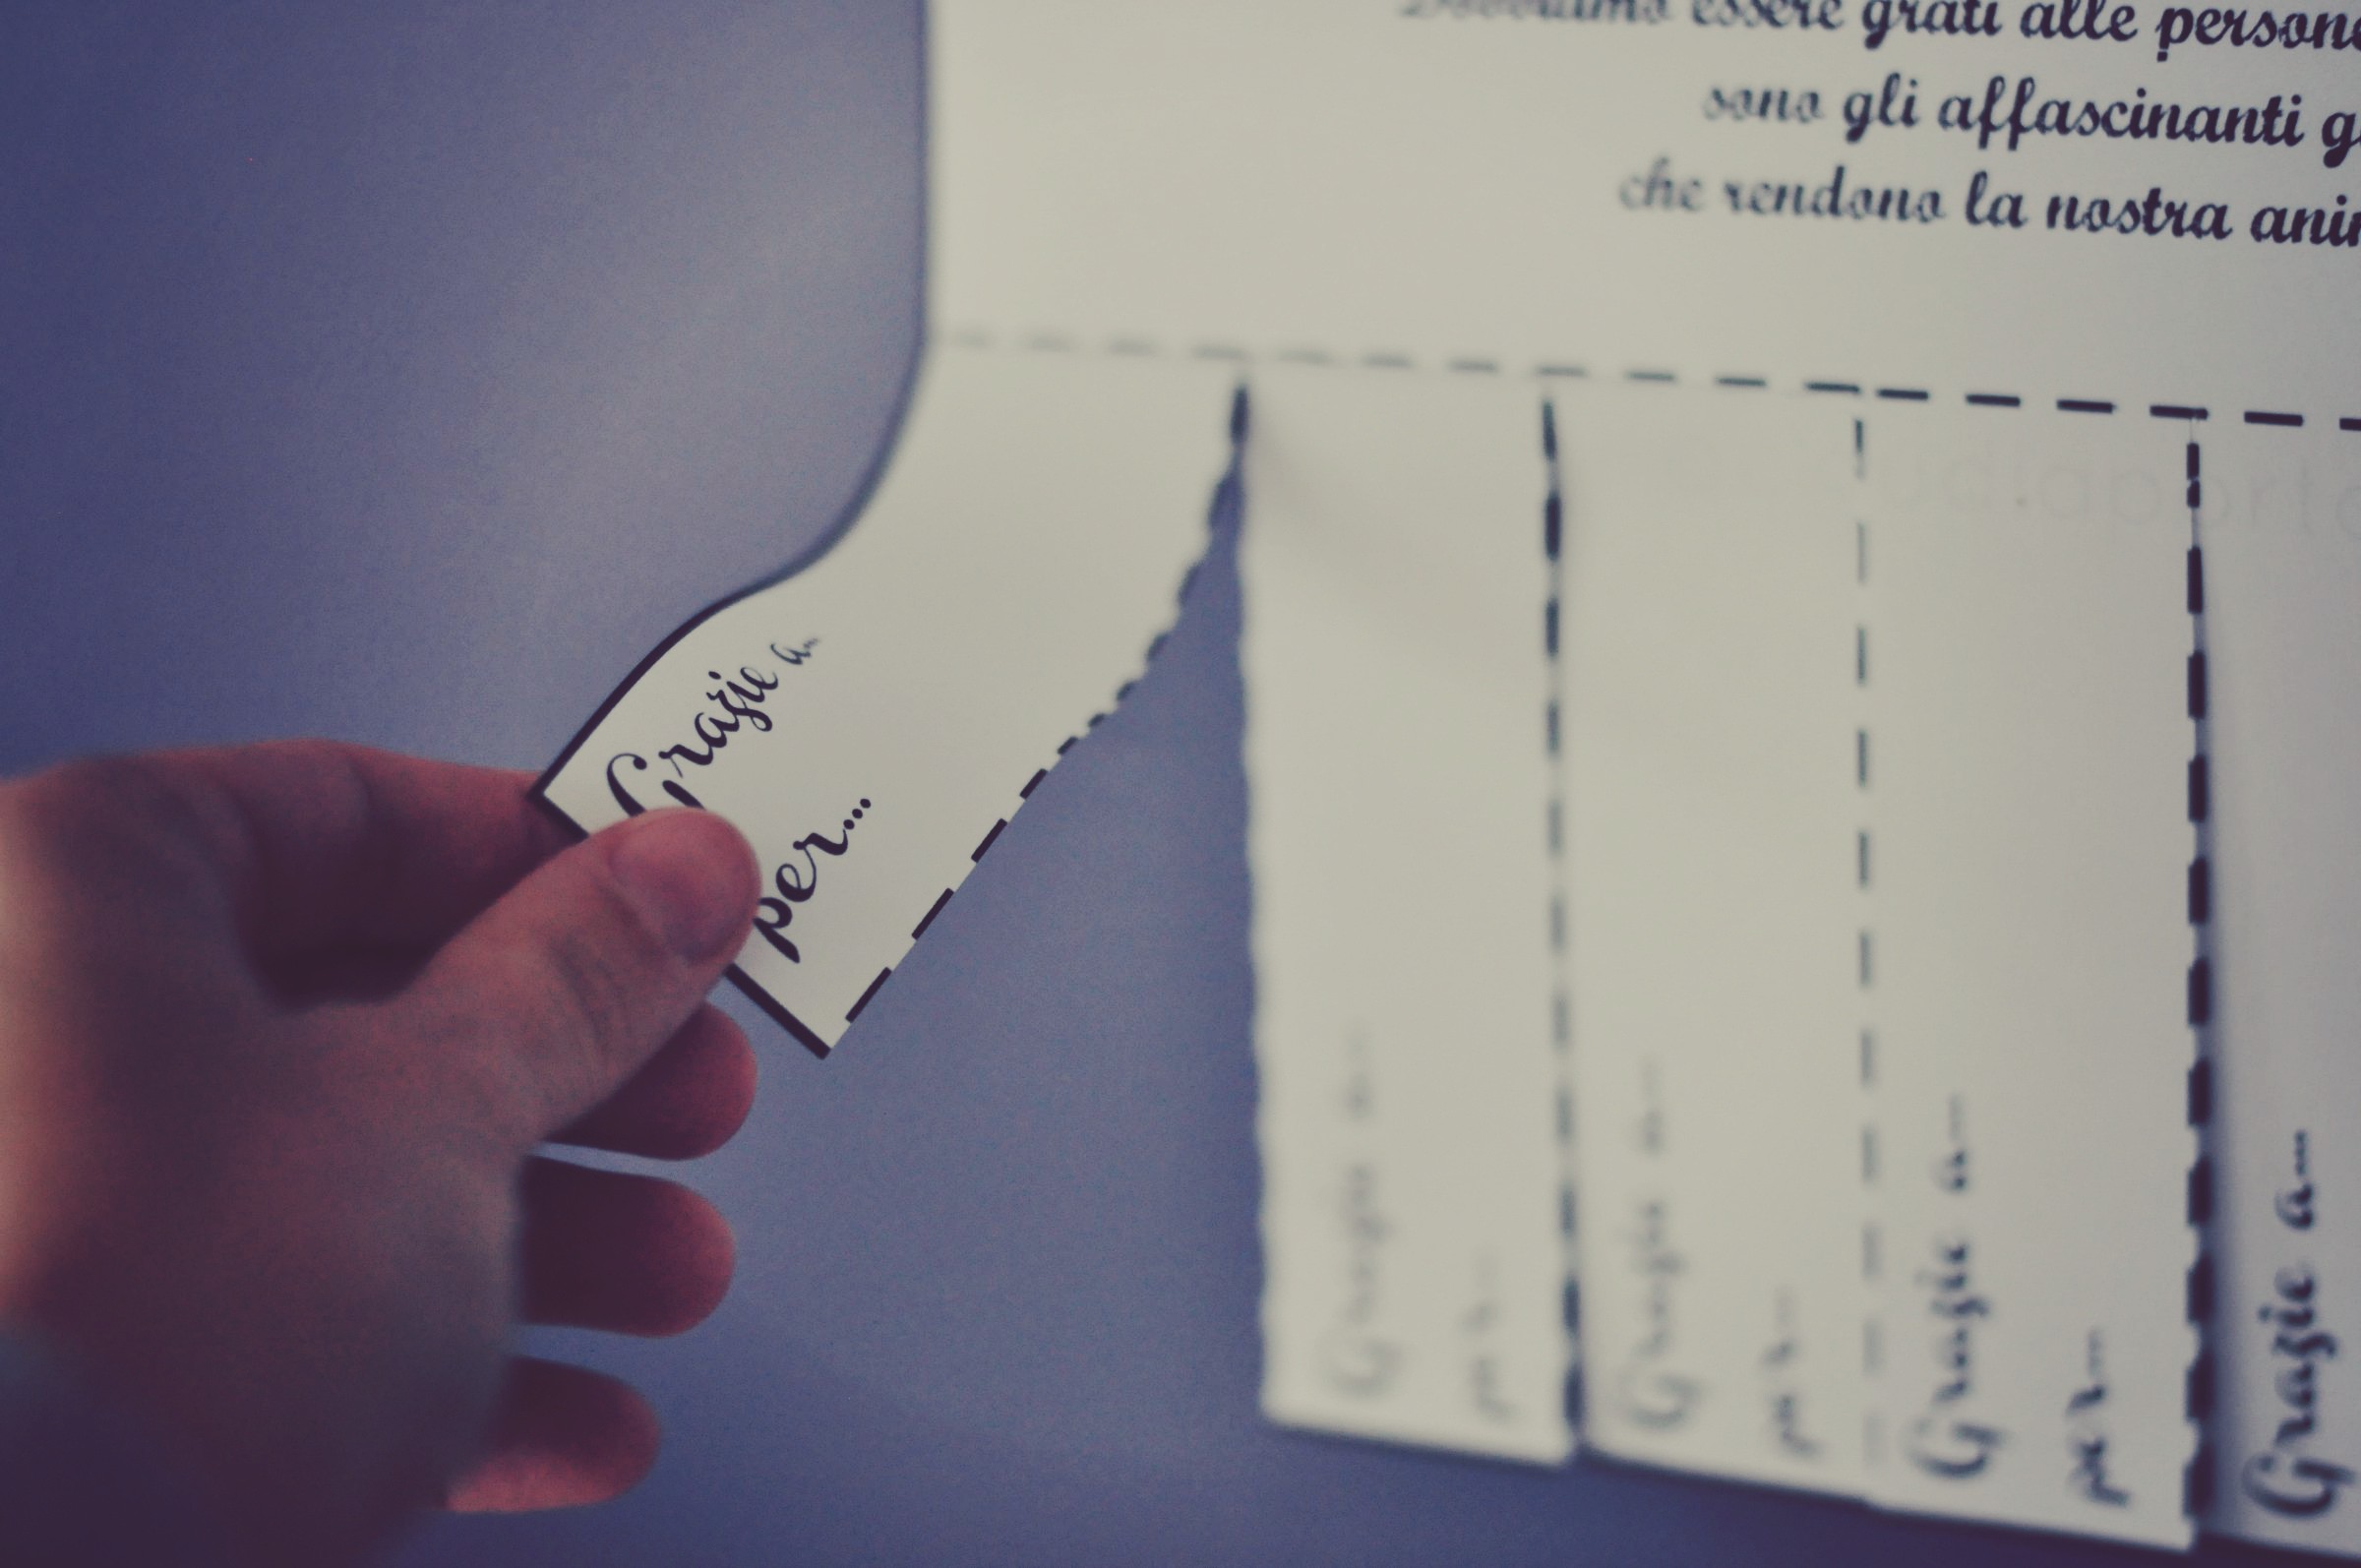 essere grati alle persone
sono gli affascinanti
che rendono la nostra
Grazie a...
per...
Grazie a...
per...
Grazie a...
per...
Grazie a...
per...
Grazie a...